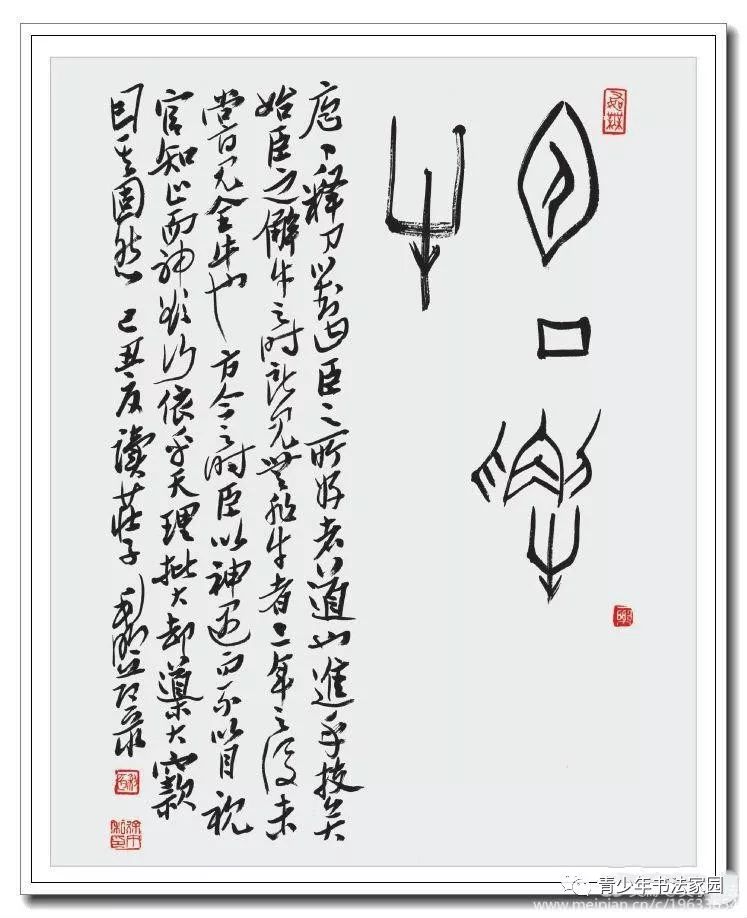 庖丁解
牛
庖丁釋刀對曰臣之所好者道也進乎技矣
始臣之解牛之時所見無非牛者三年之後未
嘗見全牛也方今之時臣以神遇而不以目視
官知止而神欲行依乎天理批大郤導大窾
因其固然 己丑讀莊子
青少年书法家园
www.meipian.cn/c/1963